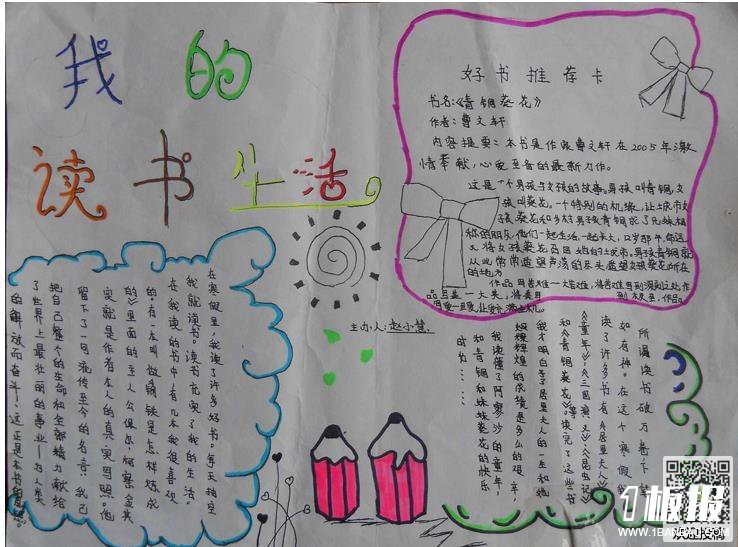 我的
读书生活
好书推荐卡
书名:《青铜葵花》
作者:曹文轩
内容提要:本书是作家曹文轩在2005年激
情奉献,心爱至音的最新力作。
这是一个男孩与女孩的故事。男孩叫青铜,女
孩叫葵花。一个特别的机缘,让城市女
孩葵花和乡村男孩青铜成了兄妹相
称的朋友,他们一起生活,一起长大,12岁那年,命运
又将女孩葵花召回她的城市。男孩青铜
从此常常遥望芦荡的尽头,遥望女孩葵花所在
的地方
作品写苦难
主办人:赵小慧
在寒假里,我读了许多好书。每天抽空
我就读书。读书充实了我的生活。
在我读的书中有几本我很喜欢
的。有一本叫做《钢铁是怎样炼成
的》里面的主人公保尔·柯察金其
实就是作者本人的真实写照。他
留下了一句流传至今的名言:我已
把自己整个的生命和全部精力献给
了世界上最壮丽的事业—为人类
的解放而奋斗!这正是本书的
所谓读书破万卷下
如有神。在这个寒假我
读了许多书有《居里夫人》
《童年》《三国演义》《昆虫记》
和《青铜葵花》等。读完了这些书
我才明白了居里夫人的一生和她
辉煌的成绩是多么的艰辛,
我读懂了阿廖沙的童年,
和青铜和妹妹葵花的快乐
成为……
1板报
WWW.1BANBAO.COM
欢迎投稿